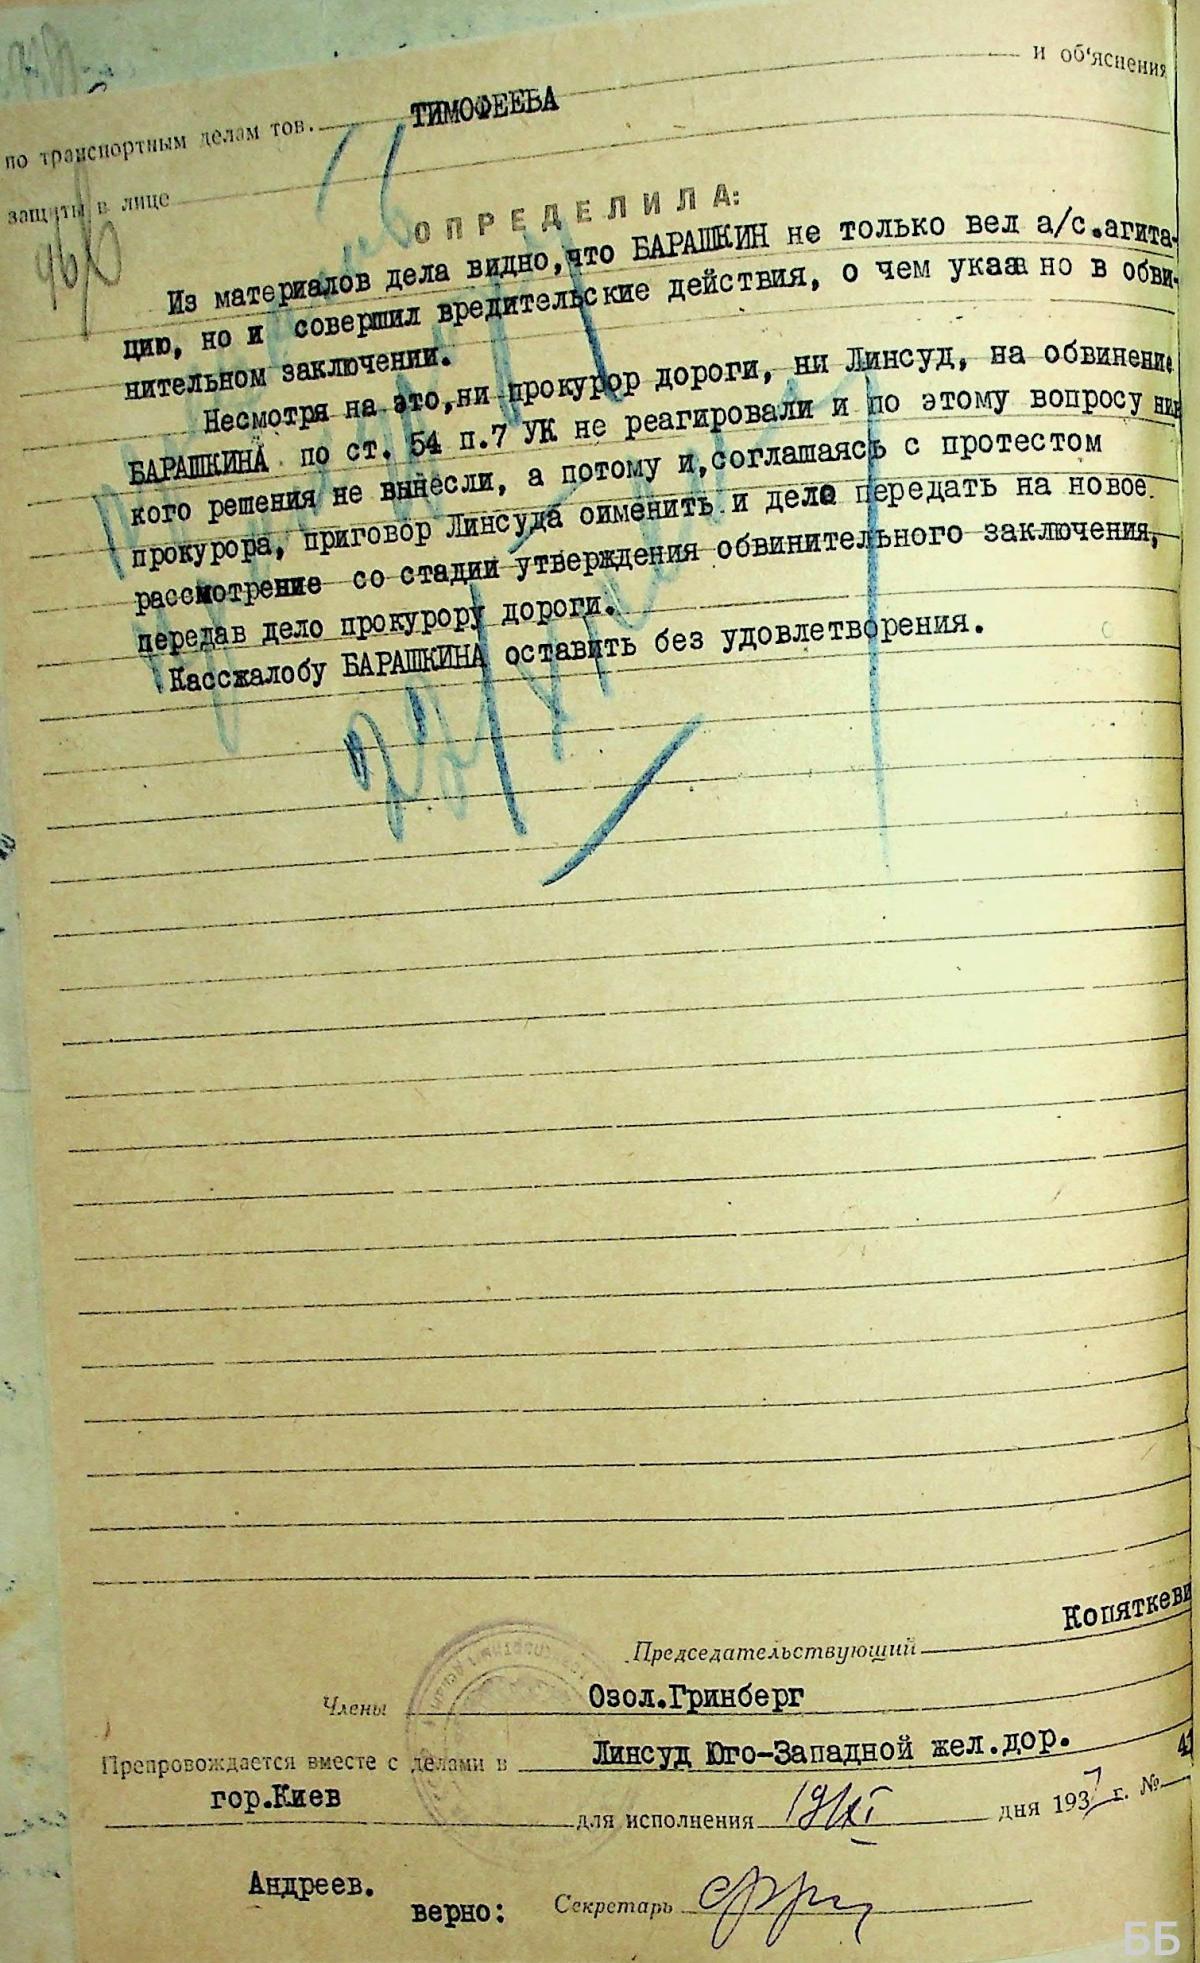 и об'яснения
по транспортным делам тов. ТИМОФЕЕВА
защиты в лице
ОПРЕДЕЛИЛА:
Из материалов дела видно, что БАРАШКИН не только вел а/с.агита-
цию, но и совершил вредительские действия, о чем указа но в обви-
нительном заключении.
Несмотря на это, ни прокурор дороги, ни Линсуд, на обвинение
БАРАШКИНА по ст. 54 п.7 УК не реагировали и по этому вопросу ник
кого решения не вынесли, а потому и, соглашаясь с протестом
прокурора, приговор Линсуда оименить и дело передать на новое
рассмотрение со стадии утверждения обвинительного заключения,
передав дело прокурору дороги.
Кассжалобу БАРАШКИНА оставить без удовлетворения.
22/XI
Председательствующий Копяткеви
Члены Озол.Гринберг
Препровождается вместе с делами в Линсуд Юго-Западной жел.дор.
гор.Киев для исполнения 19/XI дня 1937 г. № 4
Андреев.
верно: Секретарь
ББ